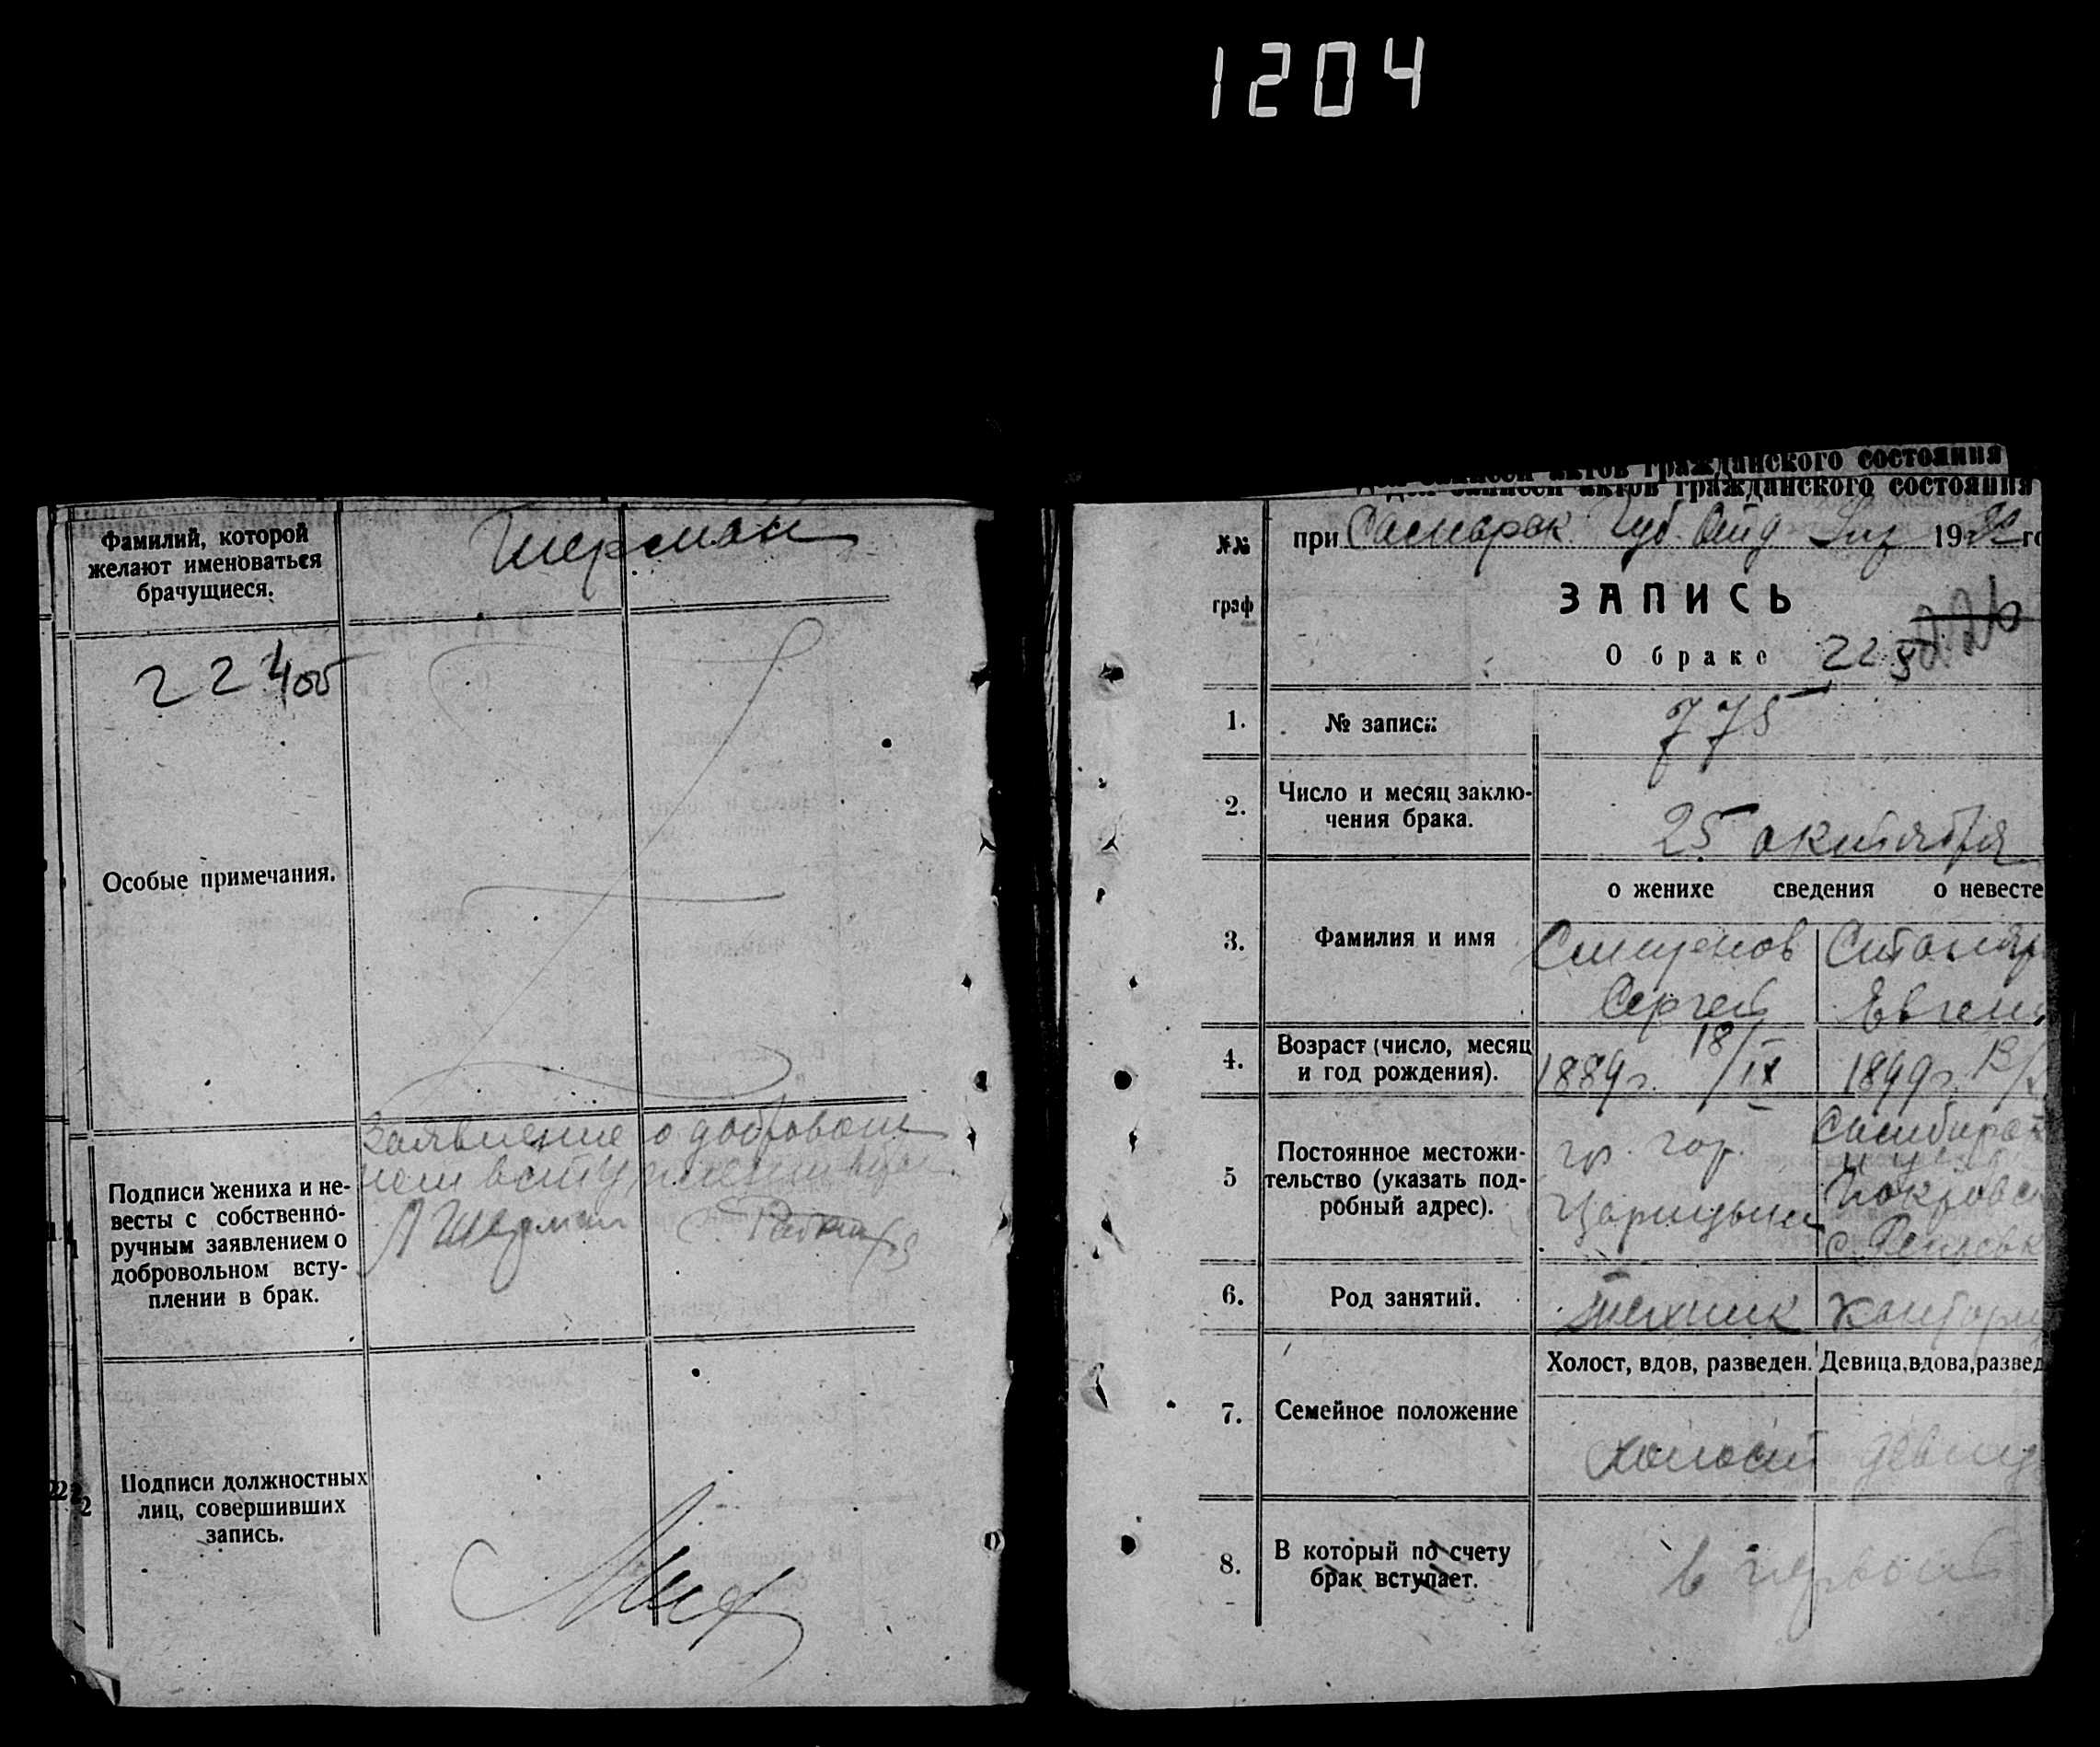 1204
Фамилий, которой
желают именоваться
брачущиеся.
Шерман
22 400
Особые примечания.
Подписи жениха и не-
весты с собственно-
ручным заявлением о
добровольном всту-
плении в брак.
Заявление о доброволь
ном вступлении
Шерман
Подписи должностных
лиц, совершивших
запись.
записей актов гражданского состояния
для записей актов гражданского состояния
№№
граф
при Самарск. Губ. 19
ЗАПИСЬ
О браке
1. № записи: 775
2. Число и месяц заклю-
чения брака.
25 октября
о женихе сведения о невесте
3. Фамилия и имя
Сергей Евген
4. Возраст (число, месяц
и год рождения).
1889г. 18/IX 1899г.
5 Постоянное местожи-
тельство (указать под-
робный адрес).
гр. гор.
Царицына
Покровск
6. Род занятий.
техник
Холост, вдов, разведен. Девица, вдова, развед
7. Семейное положение
холост девиц
8. В который по счету
брак вступает.
в первый